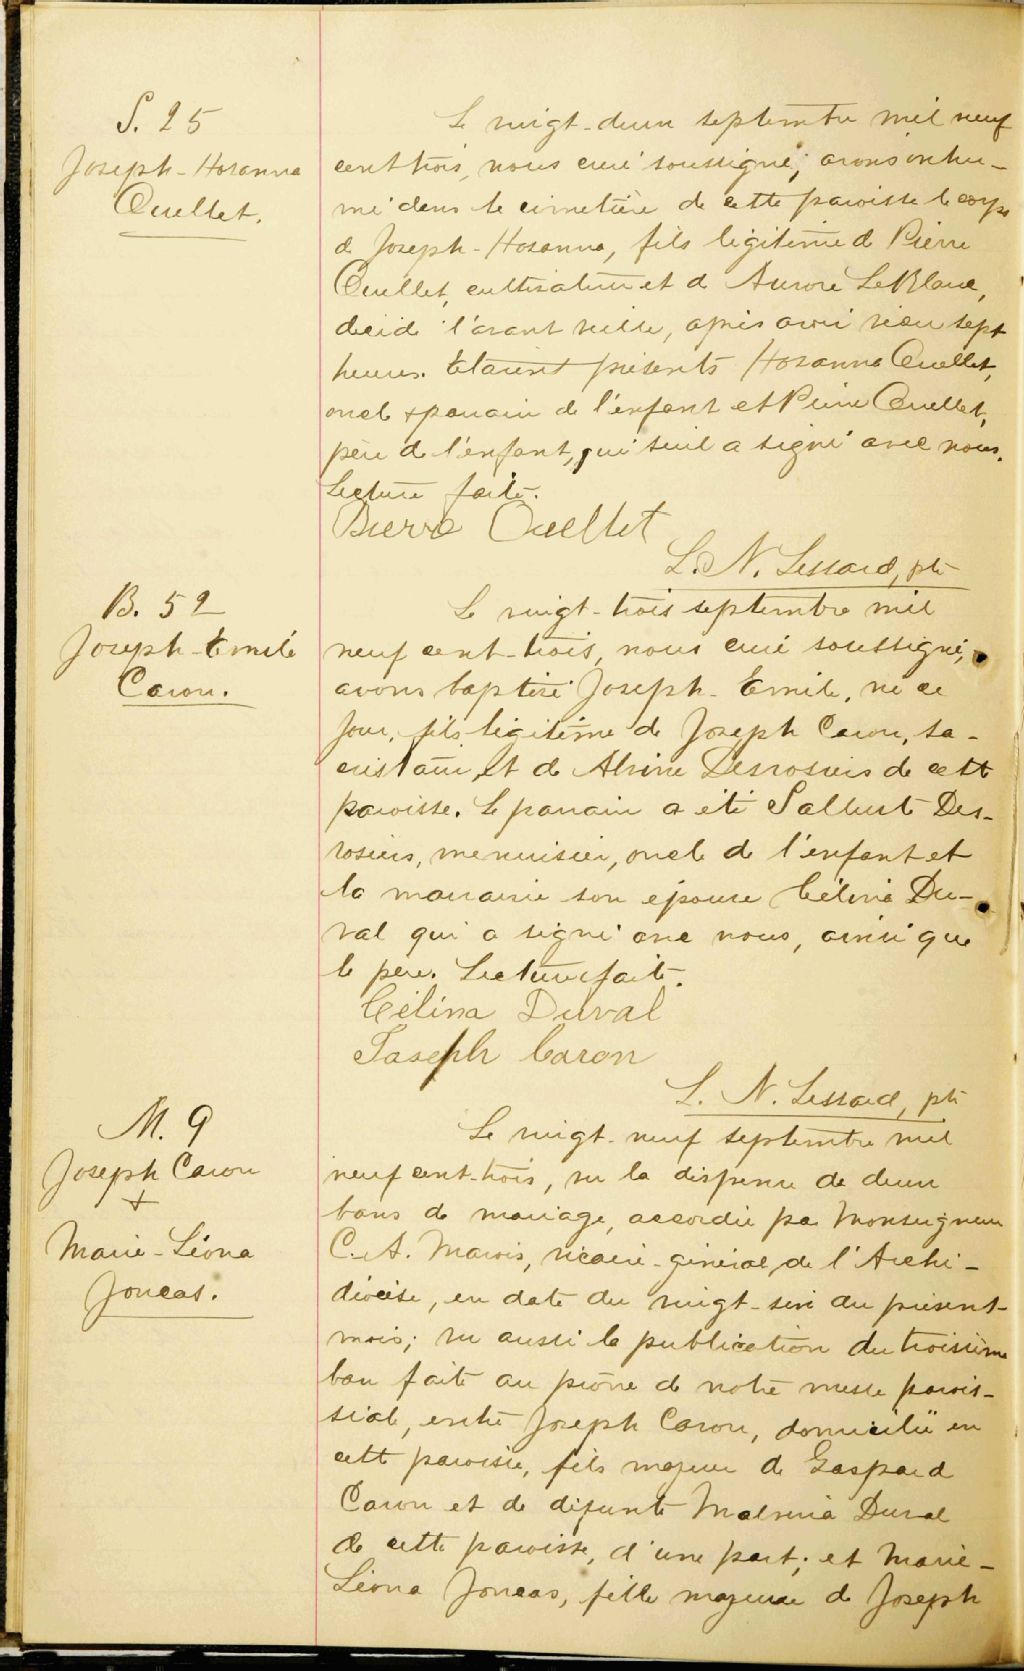 S. 25
Joseph-Hosanna
Ouellet.
Le vingt-deux septembre mil neuf
cent trois, nous curé soussigné, avons inhu-
mé dans le cimetière de cette paroisse le corps
de Joseph-Hosanna, fils légitime de Pierre
Ouellet, cultivateur et de Aurore LeBlanc,
décédé l'avant veille, après avoir vécu sept
heures. Etaient présents Hosanna Ouellet,
oncle & parrain de l'enfant et Pierre Ouellet,
père de l'enfant, qui seul a signé avec nous.
Lecture faite.
Pierre Ouellet
L. N. Lessard, ptre
B. 52
Joseph-Emile
Caron.
Le vingt-trois septembre mil
neuf cent-trois, nous curé soussigné,
avons baptisé Joseph-Emile, né ce
jour, fils légitime de Joseph Caron, sa-
cristain, et de Alvine Desrosiers de cette
paroisse. Le parrain a été Salluste Des-
rosiers, menuisier, oncle de l'enfant et
la marraine son épouse Célina Du-
val qui a signé avec nous, ainsi que
le père. Lecture faite.
Célina Duval
Joseph Caron
L. N. Lessard, ptre
M. 9
Joseph Caron
+
Marie-Léona
Joncas.
Le vingt-neuf septembre mil
neuf cent-trois, vu la dispense de deux
bans de mariage, accordée par Monseigneur
C. A. Marois, vicaire-général de l'Archi-
diocèse, en date du vingt-six du présent
mois; vu aussi la publication du troisième
ban faite au prône de notre messe parois-
siale, entre Joseph Caron, domicilié en
cette paroisse, fils majeur de Gaspard
Caron et de défunte Malvina Duval
de cette paroisse, d'une part; et Marie-
Léona Joncas, fille majeure de Joseph